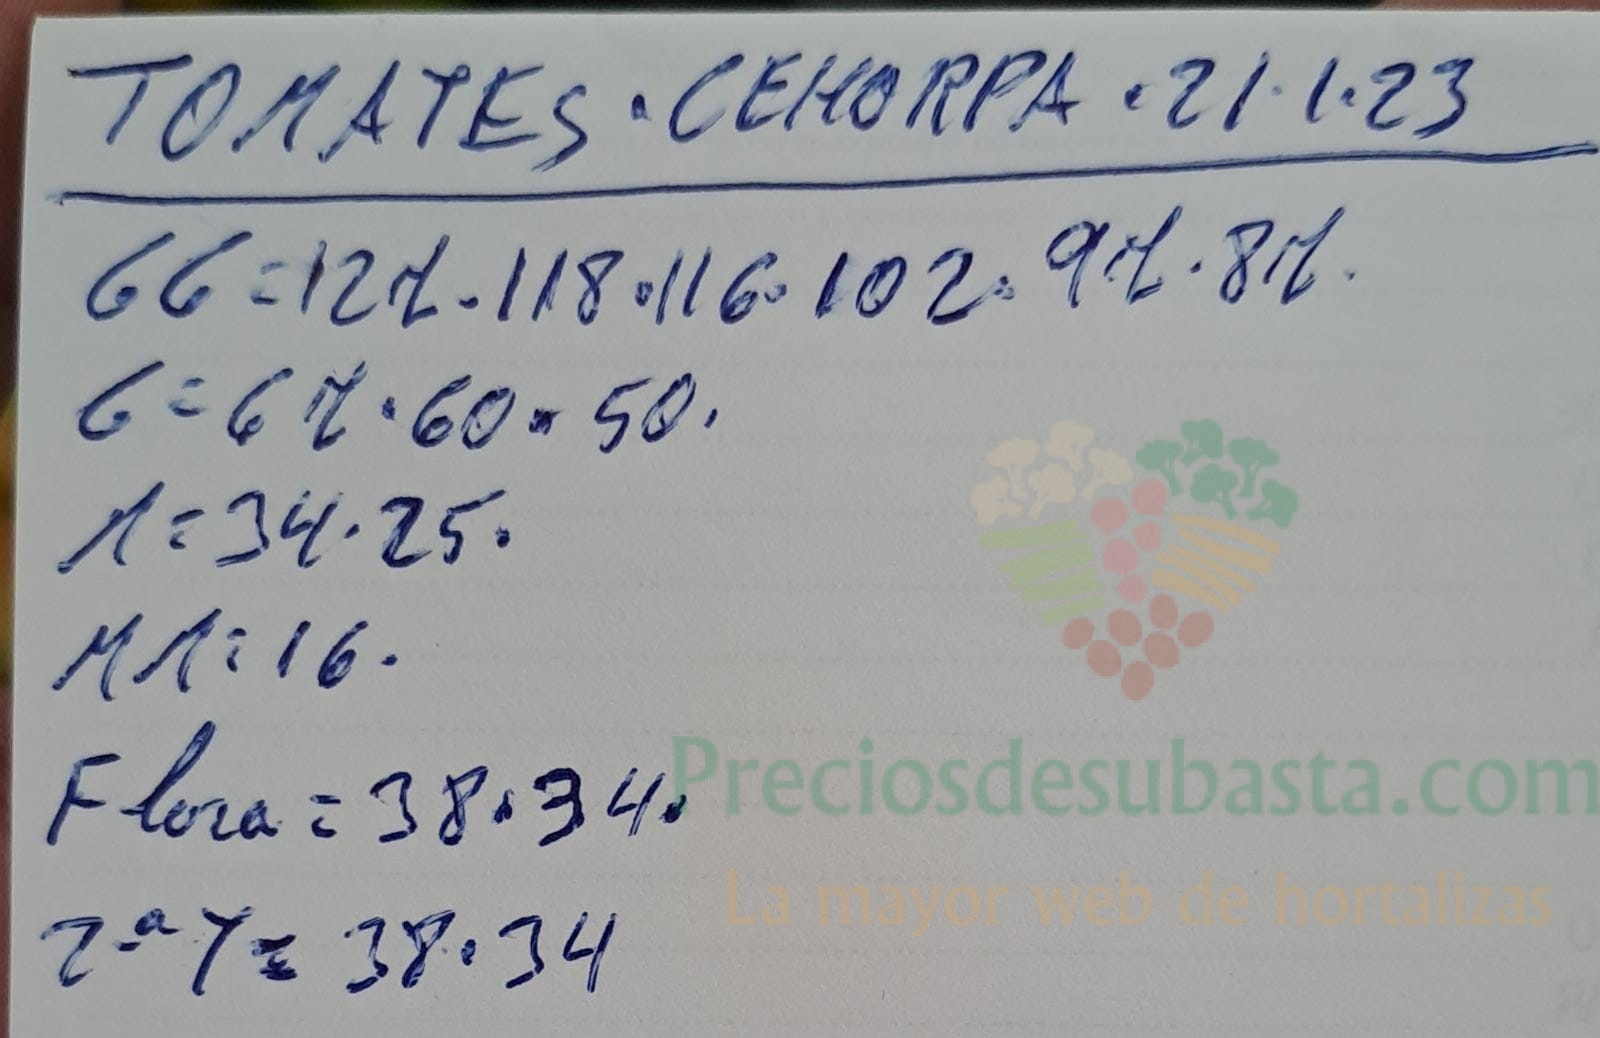 TOMATES · CEHORPA · 21·1·23
GG = 127 · 118 · 116 · 102 · 97 · 87.
G = 67 · 60 · 50.
M = 34 · 25.
MM = 16.
Flora = 38 · 34.
2ª T = 38 · 34
Preciosdesubasta.com
La mayor web de hortalizas